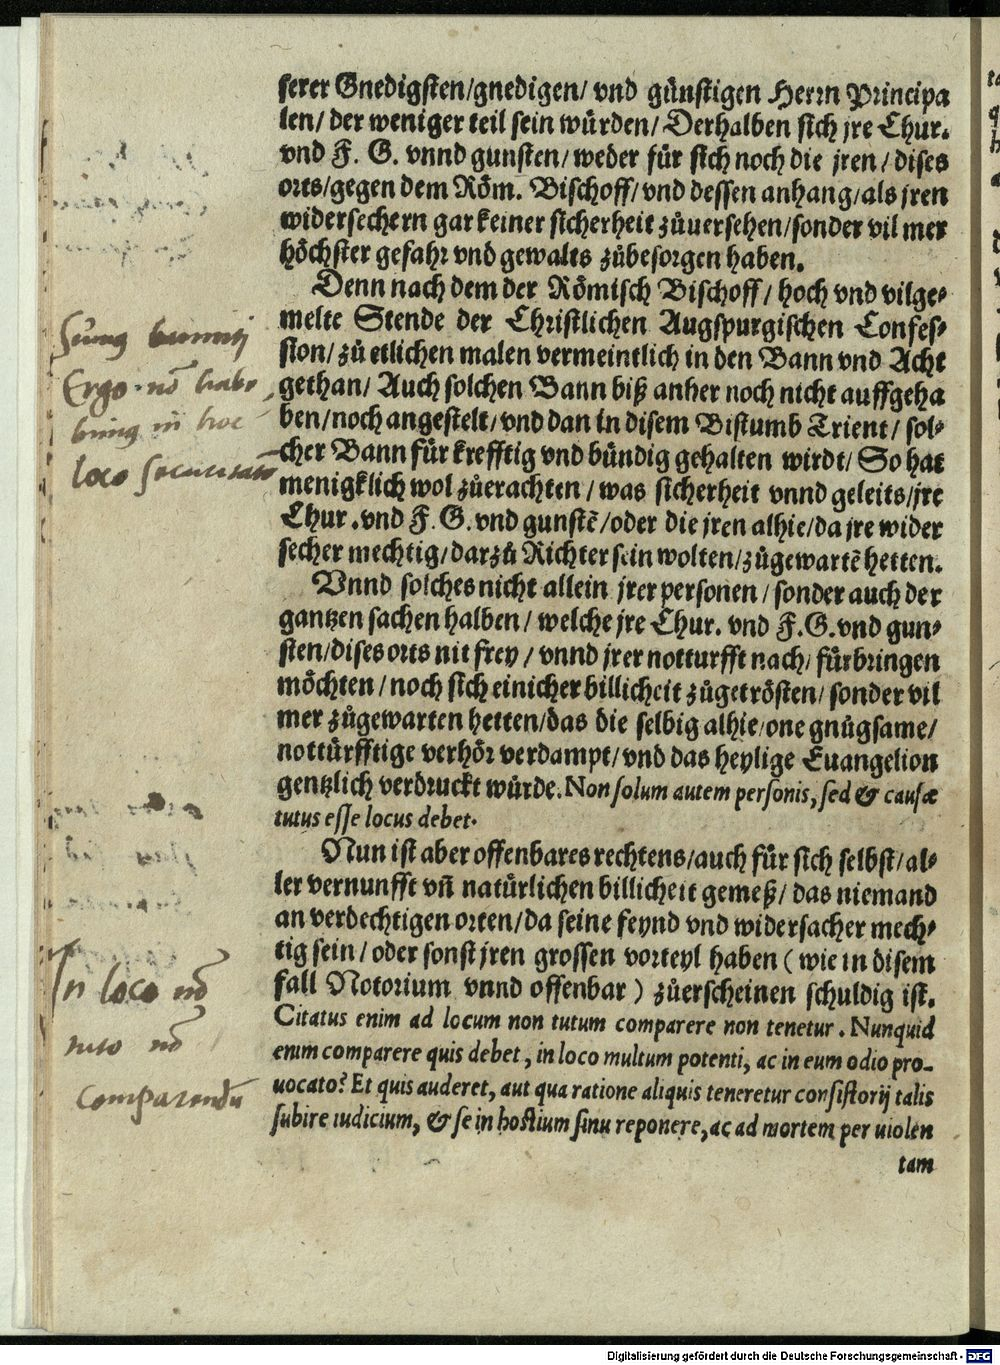 serer Gnedigsten/gnedigen/ vnd günstigen Herrn Principa
len/ der weniger teil sein würden/ Derhalben sich jre Chur.
vnd F. G. vnnd gunsten/ weder für sich noch die jren/ dises
orts/gegen dem Röm. Bischoff/ vnd dessen anhang/als jren
widersechern gar keiner sicherheit zůuersehen/sonder vil mer
höchster gefahr vnd gewalts zůbesorgen haben.
Denn nach dem der Römisch Bischoff/ hoch vnd vilge-
melte Stende der Christlichen Augspurgischen Confes-
sion/ zů etlichen malen vermeintlich in den Bann vnd Acht
gethan/ Auch solchen Bann biß anher noch nicht auffgeha
ben/noch angestelt/ vnd dan in disem Bistumb Trient/ sol-
cher Bann für krefftig vnd bündig gehalten wirdt/ So hat
menigklich wol zůerachten/ was sicherheit vnnd geleits/jre
Chur. vnd F. G. vnd gunstē/oder die jren alhie/da jre wider
secher mechtig/darzů Richter sein wolten/zůgewartē hetten.
Vnnd solches nicht allein jrer personen/ sonder auch der
gantzen sachen halben/ welche jre Chur. vnd F.G.vnd gun-
sten/dises orts nit frey/ vnnd jrer notturfft nach/ fürbringen
möchten/ noch sich einicher billicheit zůgetrösten/ sonder vil
mer zůgewarten hetten/das die selbig alhie/one gnůgsame/
nottürfftige verhör verdampt/ vnd das heylige Euangelion
gentzlich verdruckt würde. Non solum autem personis, sed & causæ
tutus esse locus debet.
Nun ist aber offenbares rechtens/auch für sich selbst/al-
ler vernunfft vñ natürlichen billicheit gemeß/ das niemand
an verdechtigen orten/da seine feynd vnd widersacher mech-
tig sein/ oder sonst jren grossen vorteyl haben ( wie in disem
fall Notorium vnnd offenbar ) zůerscheinen schuldig ist.
Citatus enim ad locum non tutum comparere non tenetur. Nunquid
enim comparere quis debet, in loco multum potenti, ac in eum odio pro-
uocato? Et quis auderet, aut qua ratione aliquis teneretur consistorij talis
subire iudicium, & se in hostium sinu reponere, ac ad mortem per uiolen
tam
Sumus banniti
Ergo nō habe
bimus in hoc
loco securitatē
In loco nō
tuto nō
comparendū
Digitalisierung gefördert durch die Deutsche Forschungsgemeinschaft - DFG